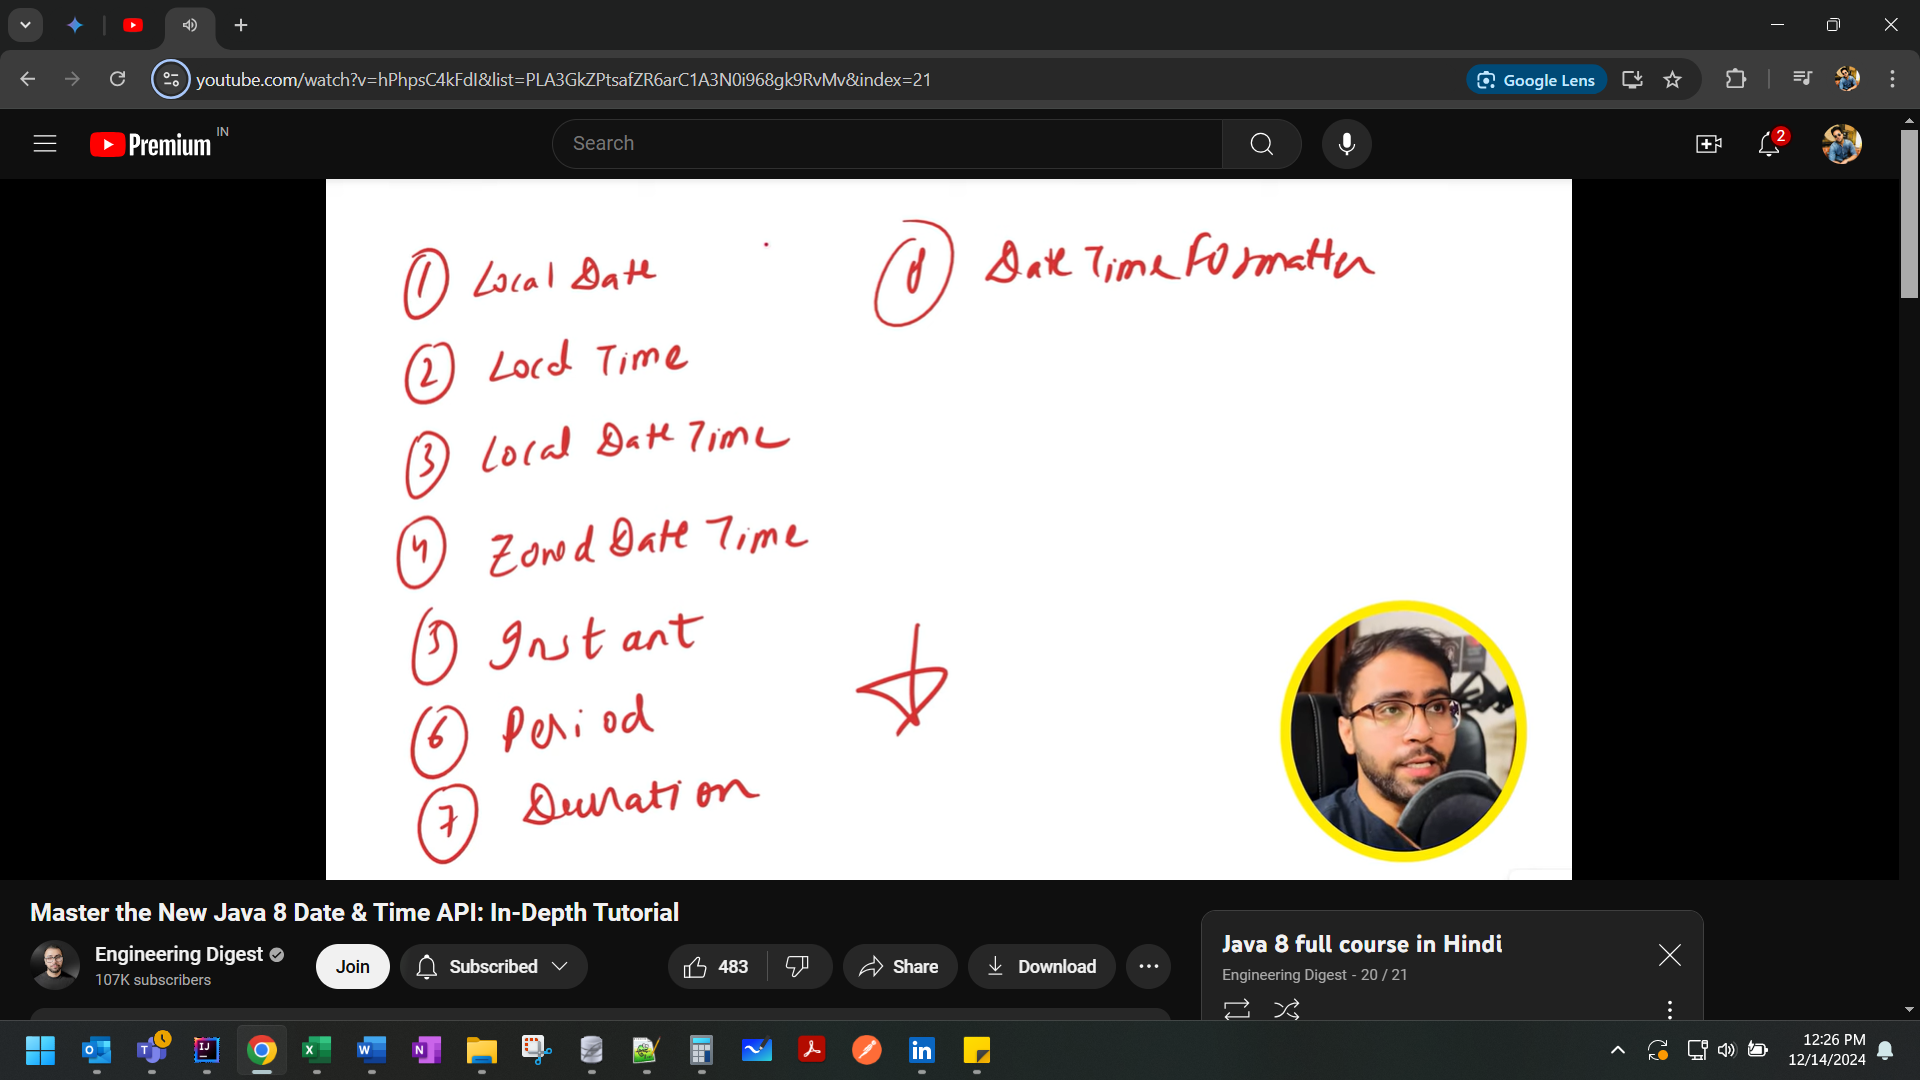 youtube.com/watch?v=hPhpsC4kFdI&list=PLA3GkZPtsafZR6arC1A3N0i968gk9RvMv&index=21
Google Lens
Premium
IN
Search
2
1 Local Date
2 Local Time
3 Local Date Time
4 Zoned Date Time
5 Instant
6 Period
7 Duration
8 Date Time Formatter
Master the New Java 8 Date & Time API: In-Depth Tutorial
Engineering Digest
107K subscribers
Join
Subscribed
483
Share
Download
Java 8 full course in Hindi
Engineering Digest - 20 / 21
12:26 PM
12/14/2024